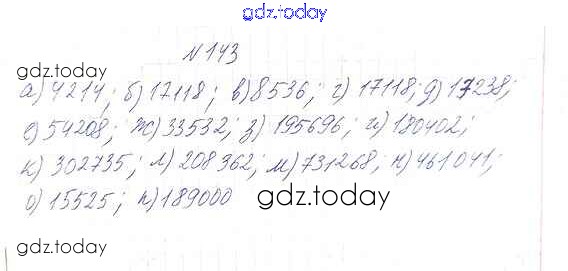 gdz.today
N 143
gdz.today
а) 4214; б) 17118; в) 8536; г) 17118; д) 17238;
е) 54208; ж) 33532; з) 195696; и) 180402;
к) 302735; л) 208362; м) 731268; н) 461041;
о) 15525; п) 189000 gdz.today
gdz.today